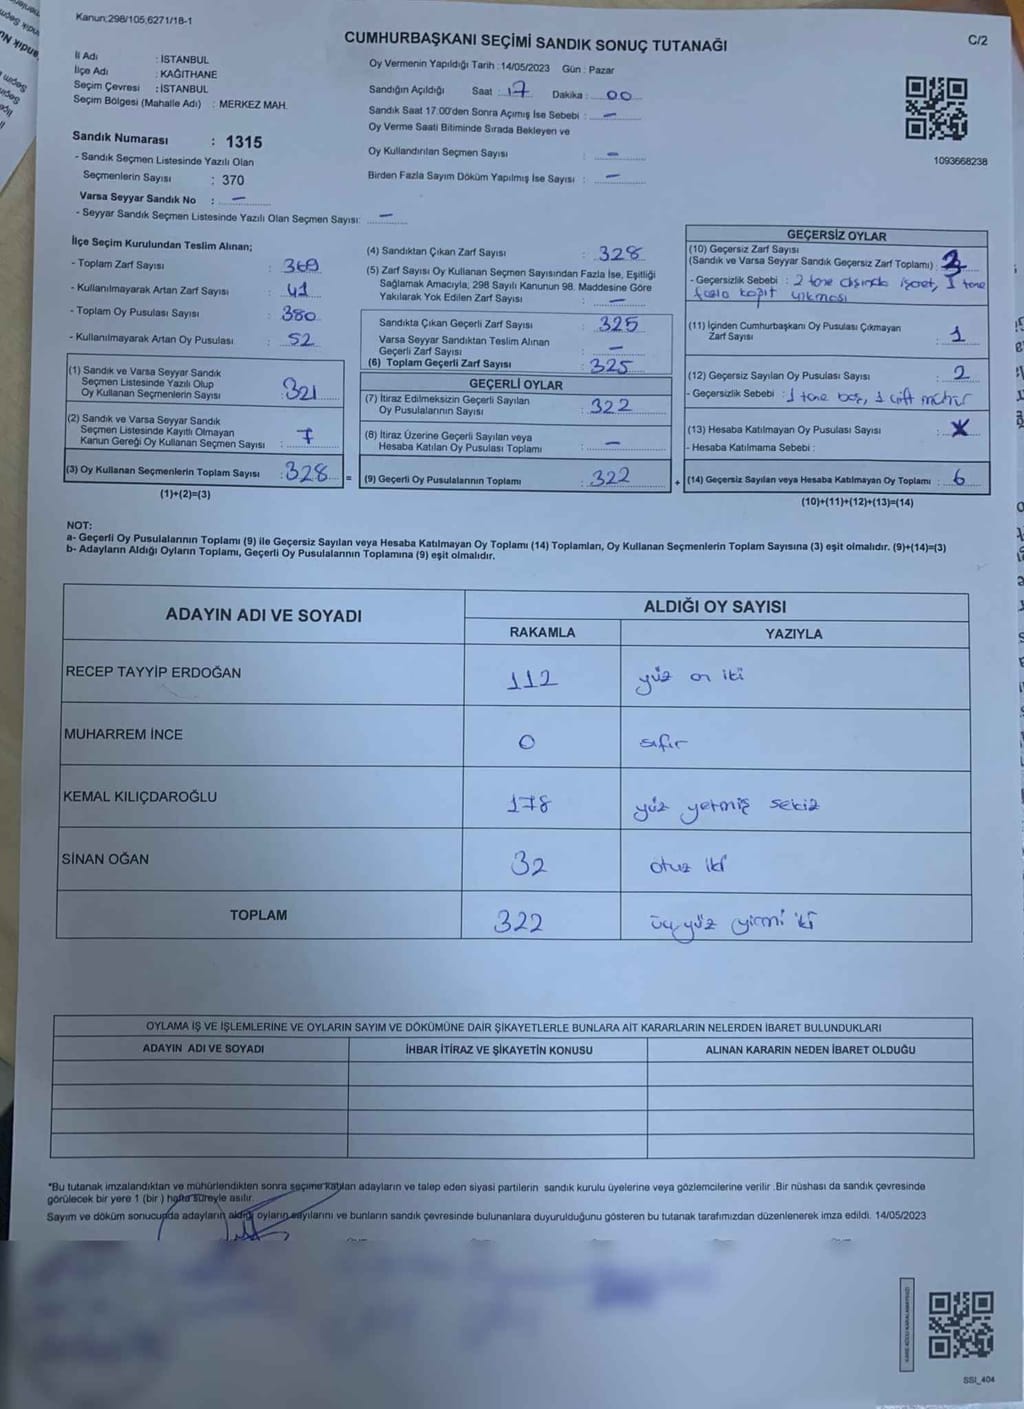 Kanun:298/105,6271/18-1
C/2
CUMHURBAŞKANI SEÇİMİ SANDIK SONUÇ TUTANAĞI
İl Adı : İSTANBUL
İlçe Adı : KAĞITHANE
Seçim Çevresi : İSTANBUL
Seçim Bölgesi (Mahalle Adı) : MERKEZ MAH.
Sandık Numarası : 1315
- Sandık Seçmen Listesinde Yazılı Olan
Seçmenlerin Sayısı : 370
Varsa Seyyar Sandık No : -
- Seyyar Sandık Seçmen Listesinde Yazılı Olan Seçmen Sayısı: -
Oy Vermenin Yapıldığı Tarih : 14/05/2023 Gün : Pazar
Sandığın Açıldığı Saat : 17 Dakika : 00
Sandık Saat 17:00'den Sonra Açımış İse Sebebi : -
Oy Verme Saati Bitiminde Sırada Bekleyen ve
Oy Kullandırılan Seçmen Sayısı : -
Birden Fazla Sayım Döküm Yapılmış İse Sayısı : -
1093668238
İlçe Seçim Kurulundan Teslim Alınan;
- Toplam Zarf Sayısı : 369
- Kullanılmayarak Artan Zarf Sayısı : 41
- Toplam Oy Pusulası Sayısı : 380
- Kullanılmayarak Artan Oy Pusulası : 52
(1) Sandık ve Varsa Seyyar Sandık
Seçmen Listesinde Yazılı Olup
Oy Kullanan Seçmenlerin Sayısı : 321
(2) Sandık ve Varsa Seyyar Sandık
Seçmen Listesinde Kayıtlı Olmayan
Kanun Gereği Oy Kullanan Seçmen Sayısı : 7
(3) Oy Kullanan Seçmenlerin Toplam Sayısı : 328 =
(1)+(2)=(3)
(4) Sandıktan Çıkan Zarf Sayısı : 328
(5) Zarf Sayısı Oy Kullanan Seçmen Sayısından Fazla İse, Eşitliği
Sağlamak Amacıyla, 298 Sayılı Kanunun 98. Maddesine Göre
Yakılarak Yok Edilen Zarf Sayısı : -
Sandıkta Çıkan Geçerli Zarf Sayısı : 325
Varsa Seyyar Sandıktan Teslim Alınan
Geçerli Zarf Sayısı : -
(6) Toplam Geçerli Zarf Sayısı : 325
GEÇERLİ OYLAR
(7) İtiraz Edilmeksizin Geçerli Sayılan
Oy Pusulalarının Sayısı : 322
(8) İtiraz Üzerine Geçerli Sayılan veya
Hesaba Katılan Oy Pusulası Toplamı : -
(9) Geçerli Oy Pusulalarının Toplamı : 322 +
GEÇERSİZ OYLAR
(10) Geçersiz Zarf Sayısı
(Sandık ve Varsa Seyyar Sandık Geçersiz Zarf Toplamı) : 3
- Geçersizlik Sebebi : 2 tane dışında işaret, 1 tane
fazla kağıt çıkması
(11) İçinden Cumhurbaşkanı Oy Pusulası Çıkmayan
Zarf Sayısı : 1
(12) Geçersiz Sayılan Oy Pusulası Sayısı : 2
- Geçersizlik Sebebi : 1 tane boş, 1 çift mühür
(13) Hesaba Katılmayan Oy Pusulası Sayısı :
- Hesaba Katılmama Sebebi :
(14) Geçersiz Sayılan veya Hesaba Katılmayan Oy Toplamı : 6
(10)+(11)+(12)+(13)=(14)
NOT:
a- Geçerli Oy Pusulalarının Toplamı (9) ile Geçersiz Sayılan veya Hesaba Katılmayan Oy Toplamı (14) Toplamları, Oy Kullanan Seçmenlerin Toplam Sayısına (3) eşit olmalıdır. (9)+(14)=(3)
b- Adayların Aldığı Oyların Toplamı, Geçerli Oy Pusulalarının Toplamına (9) eşit olmalıdır.
ADAYIN ADI VE SOYADI
ALDIĞI OY SAYISI
RAKAMLA YAZIYLA
RECEP TAYYİP ERDOĞAN 112 yüz on iki
MUHARREM İNCE 0 sıfır
KEMAL KILIÇDAROĞLU 178 yüz yetmiş sekiz
SİNAN OĞAN 32 otuz iki
TOPLAM 322 üçyüz yirmi iki
OYLAMA İŞ VE İŞLEMLERİNE VE OYLARIN SAYIM VE DÖKÜMÜNE DAİR ŞİKAYETLERLE BUNLARA AİT KARARLARIN NELERDEN İBARET BULUNDUKLARI
ADAYIN ADI VE SOYADI İHBAR İTİRAZ VE ŞİKAYETİN KONUSU ALINAN KARARIN NEDEN İBARET OLDUĞU
*Bu tutanak imzalandıktan ve mühürlendikten sonra seçime katılan adayların ve talep eden siyasi partilerin sandık kurulu üyelerine veya gözlemcilerine verilir .Bir nüshası da sandık çevresinde
görülecek bir yere 1 (bir ) hafta süreyle asılır.
Sayım ve döküm sonucunda adayların aldığı oyların sayılarını ve bunların sandık çevresinde bulunanlara duyurulduğunu gösteren bu tutanak tarafımızdan düzenlenerek imza edildi. 14/05/2023
SSI_404